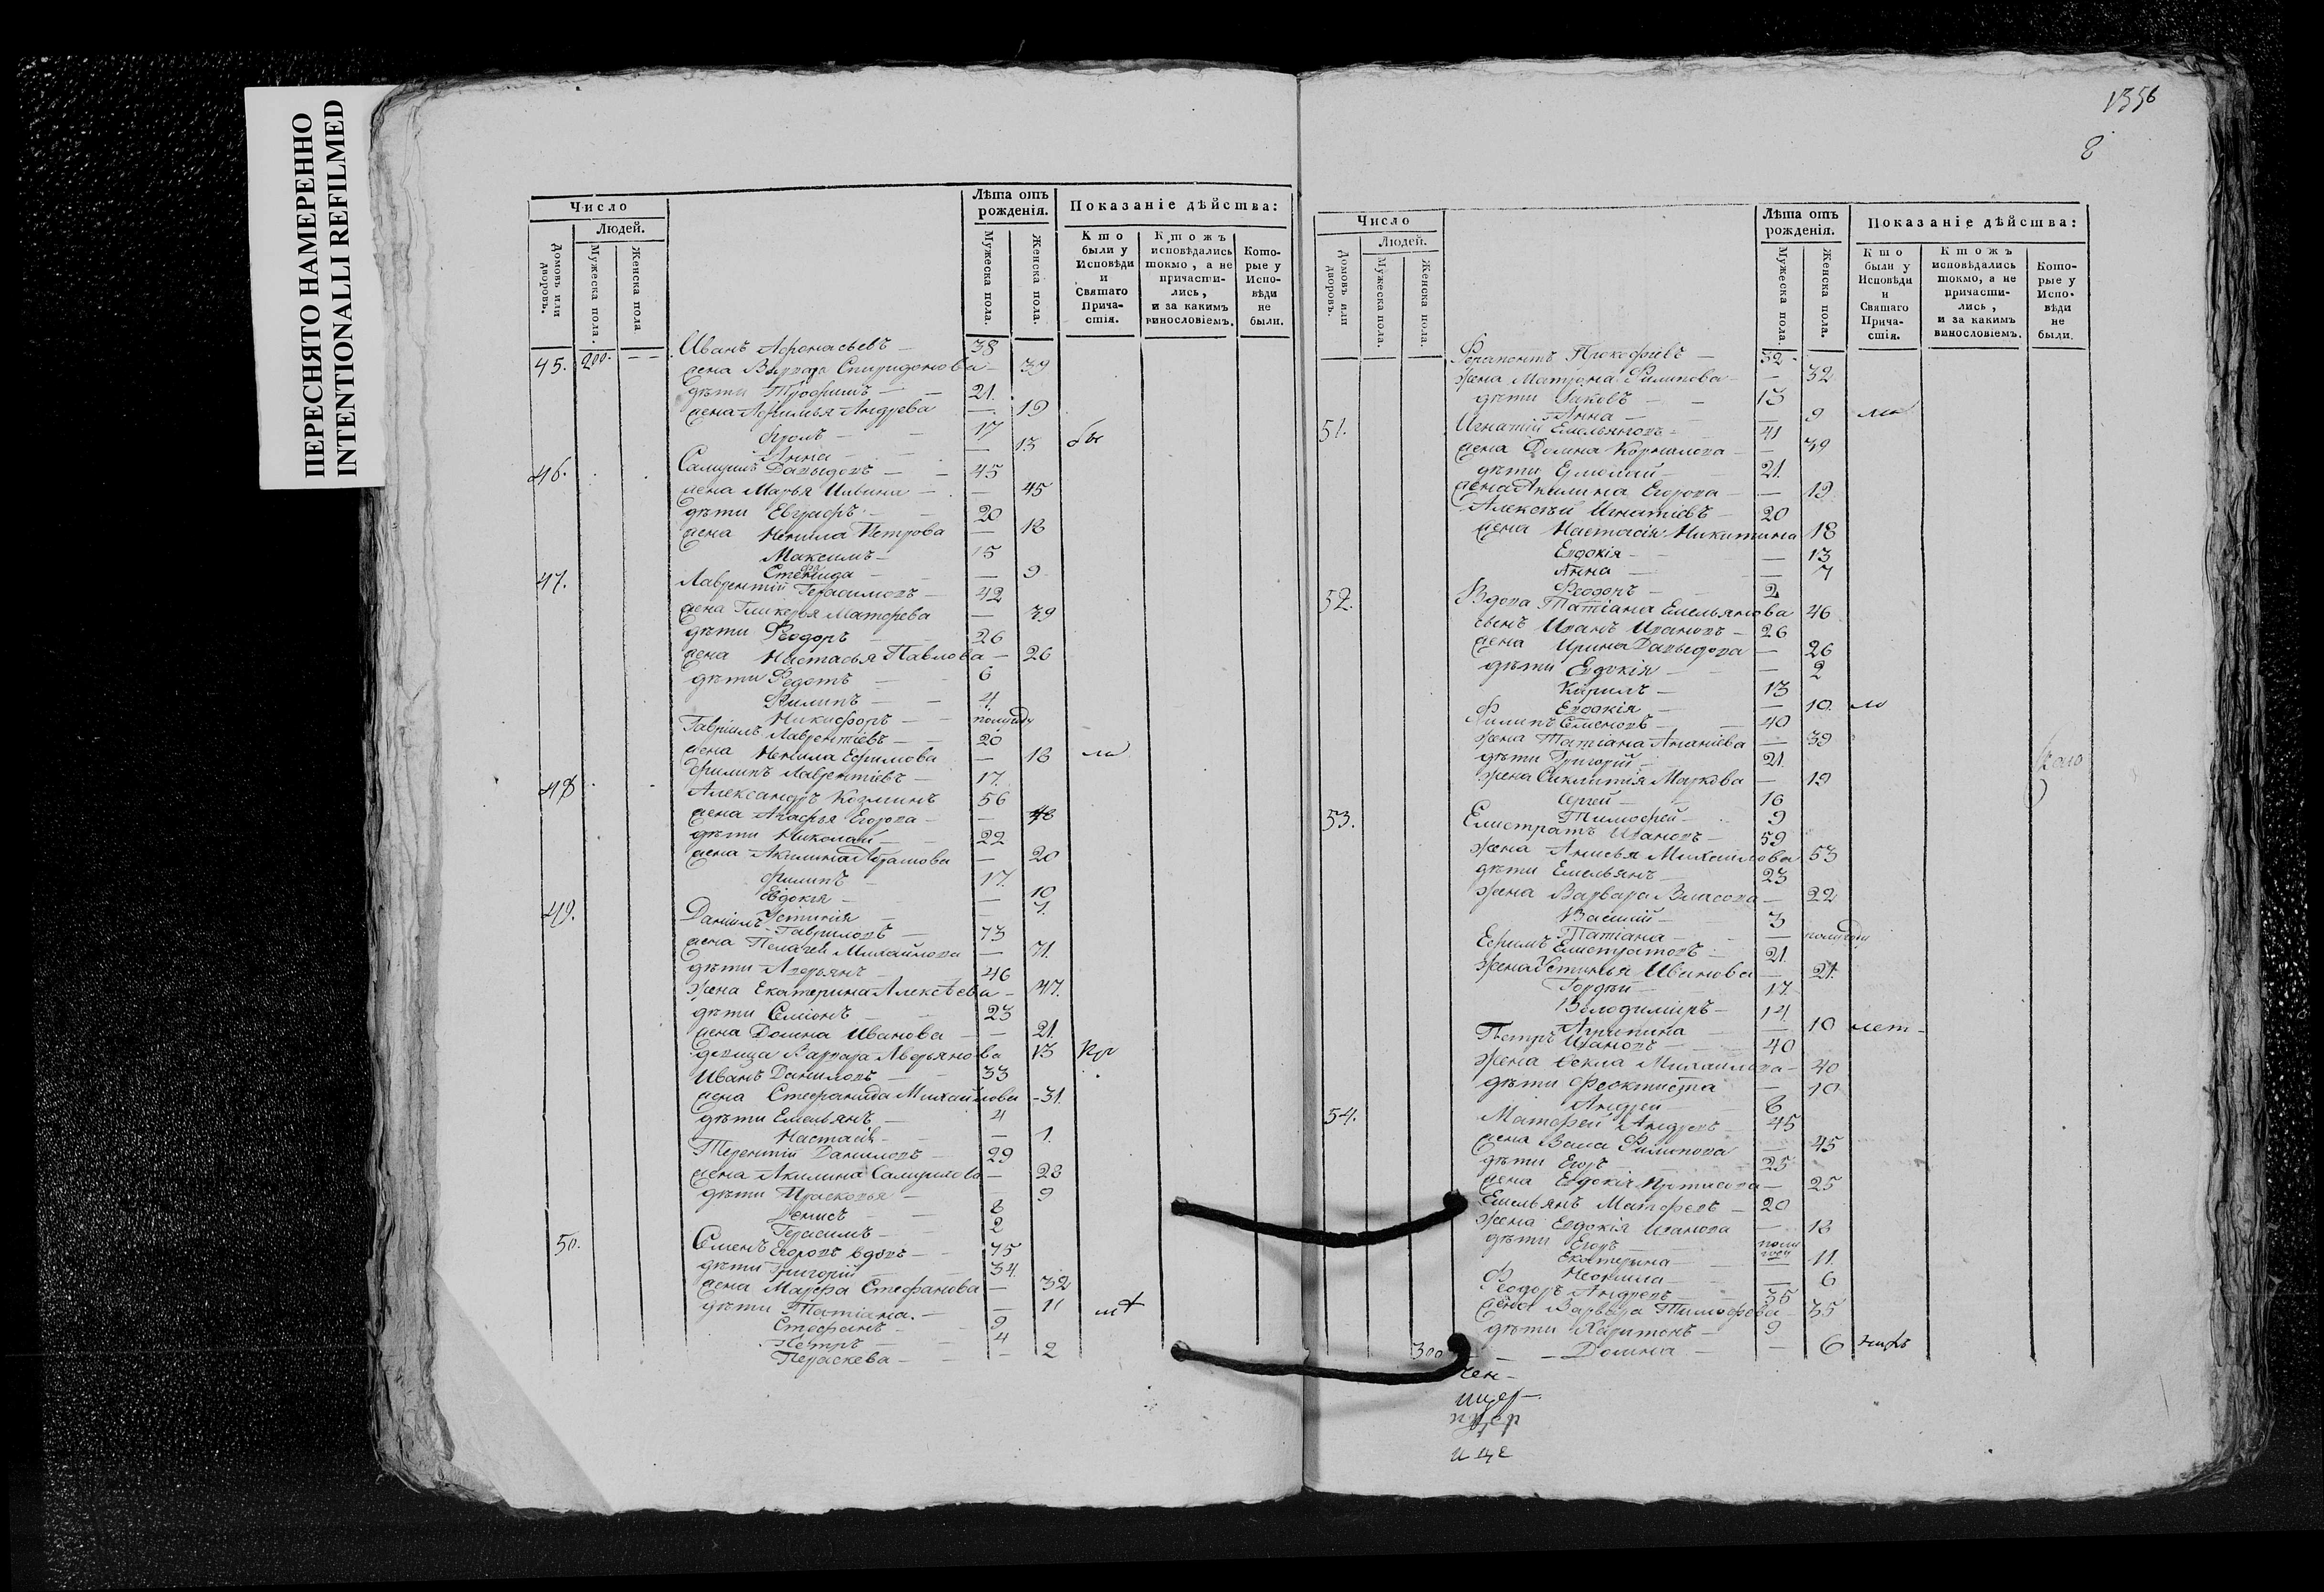 ПЕРЕСНЯТО НАМЕРЕННО
INTENTIONALLI REFILMED
Число
Людей.
Домовъ или дворовъ.
Мужеска пола.
Женска пола
Лѣта отъ рожденія.
Мужеска пола.
Женска пола.
Показаніе дѣйства:
Кто были у Исповѣди и Святаго Причастія.
Ктожъ исповѣдались токмо, а не причастились, и за какимъ винословіемъ.
Которые у Исповѣди не были.
45. 200. Иванъ Афонасьевъ — 38
жена Варвара Спиридонова — 39
дѣти Трофимъ — 21.
жена Афимья Андрева — 19
Фролъ — 17
Анна — 13 бы
46. Самуилъ Давыдовъ — 45
жена Марья Ильина — 45
дѣти Евграфъ — 20
жена Ненила Петрова — 18
Максимъ — 15
— 9
47. Лаврентій Герасимовъ — 42
жена Гликерья Матфева — 39
дѣти Ѳеодоръ — 26
жена Настасья Павлова — 26
дѣти Федотъ — 6
Филипъ — 4.
Никифоръ — полугоду
Гавріилъ Лаврентіевъ — 20
жена Ненила Ефимова — 18 ли
Филипъ Лаврентіевъ — 17.
48 Александръ Козминъ 56
жена Агафья Егорова — 48
дѣти Николай — 22
жена Акилина Абрамова — 20
Филипъ — 17.
Евдокія — 10
Устинія — 7.
49. Даніилъ Гавриловъ — 73
жена Пелагея Михайлова — 71.
дѣти Аверьянъ — 46
жена Екатерина Алексѣева — 47.
дѣти Семіонъ — 23
жена Домна Иванова — 21.
девица Варвара Аверьянова 13
Иванъ Даниловъ — 33
жена Стефанида Михайлова — 31.
дѣти Емельянъ — 4
Настасія — 1.
Терентій Даниловъ — 29
жена Акилина Самуилова — 28
дѣти Прасковья — 9
Денисъ — 8
Герасимъ — 2
50. Семенъ Егоровъ вдовъ — 75
дѣти Григорій — 34.
жена Марфа Стефанова — 32
дѣти Татіана. — 11
Стефанъ — 9
Петръ — 4
Пераскева — 2
1356
8
Число
Людей.
Домовъ или дворовъ.
Мужеска пола.
Женска пола.
Лѣта отъ рожденія.
Мужеска пола.
Женска пола.
Показаніе дѣйства:
Кто были у Исповѣди и Святаго Причастія.
Ктожъ исповѣдались токмо, а не причастились, и за какимъ винословіемъ.
Которые у Исповѣди не были.
Ферапонтъ Прокофіевъ — 32
жена Матрона Филипова — 32
дѣти Іаковъ — 13
Анна — 9
51. Игнатій Емельяновъ — 41
жена Домна Корнилова — 39
дѣти Ермолай — 21
жена Акилина Егорова — 19
Алексѣй Игнатіевъ — 20
жена Настасія Никитина 18
Евдокія — 13
Анна — 7
Ѳеодоръ — 2
52. Вдова Татіана Емельянова 46
сынъ Иванъ Ивановъ — 26
жена Ирина Давыдова — 26
дѣти Евдокія — 2
Кирилъ — 13
Евдокія — 10.
Филипъ Семеновъ — 40
жена Татіана Ананіева — 39
дѣти Григорій — 21
жена Синклитія Маркова — 19
Сергей — 16
Тимофей — 9
53. Елистратъ Ивановъ — 59
жена Анисья Михайлова 53
дѣти Емельянъ — 23
жена Варвара Власова — 22
Василій — 3
Татіана — полугоду
Ефимъ Елистратовъ — 21
жена Устинья Иванова — 21.
Гордѣй — 17
Володимиръ — 14
Агрипина — 10
Петръ Ивановъ — 40
жена Ѳекла Михаилова — 40
дѣти Феоктиста — 10
Андрей — 8
54. Матфей Андревъ — 45
жена Васа Филипова — 45
дѣти Егоръ — 25
жена Евдокія Протасова — 25
Емельянъ Матфеевъ — 20
жена Евдокія Иванова — 18
дѣти Егоръ — полугоду
Екатерина — 11.
Неонила — 6
Ѳеодоръ Андревъ — 35
жена Варвара Тимофева — 35
дѣти Харитонъ — 9
300 — Домна — 6